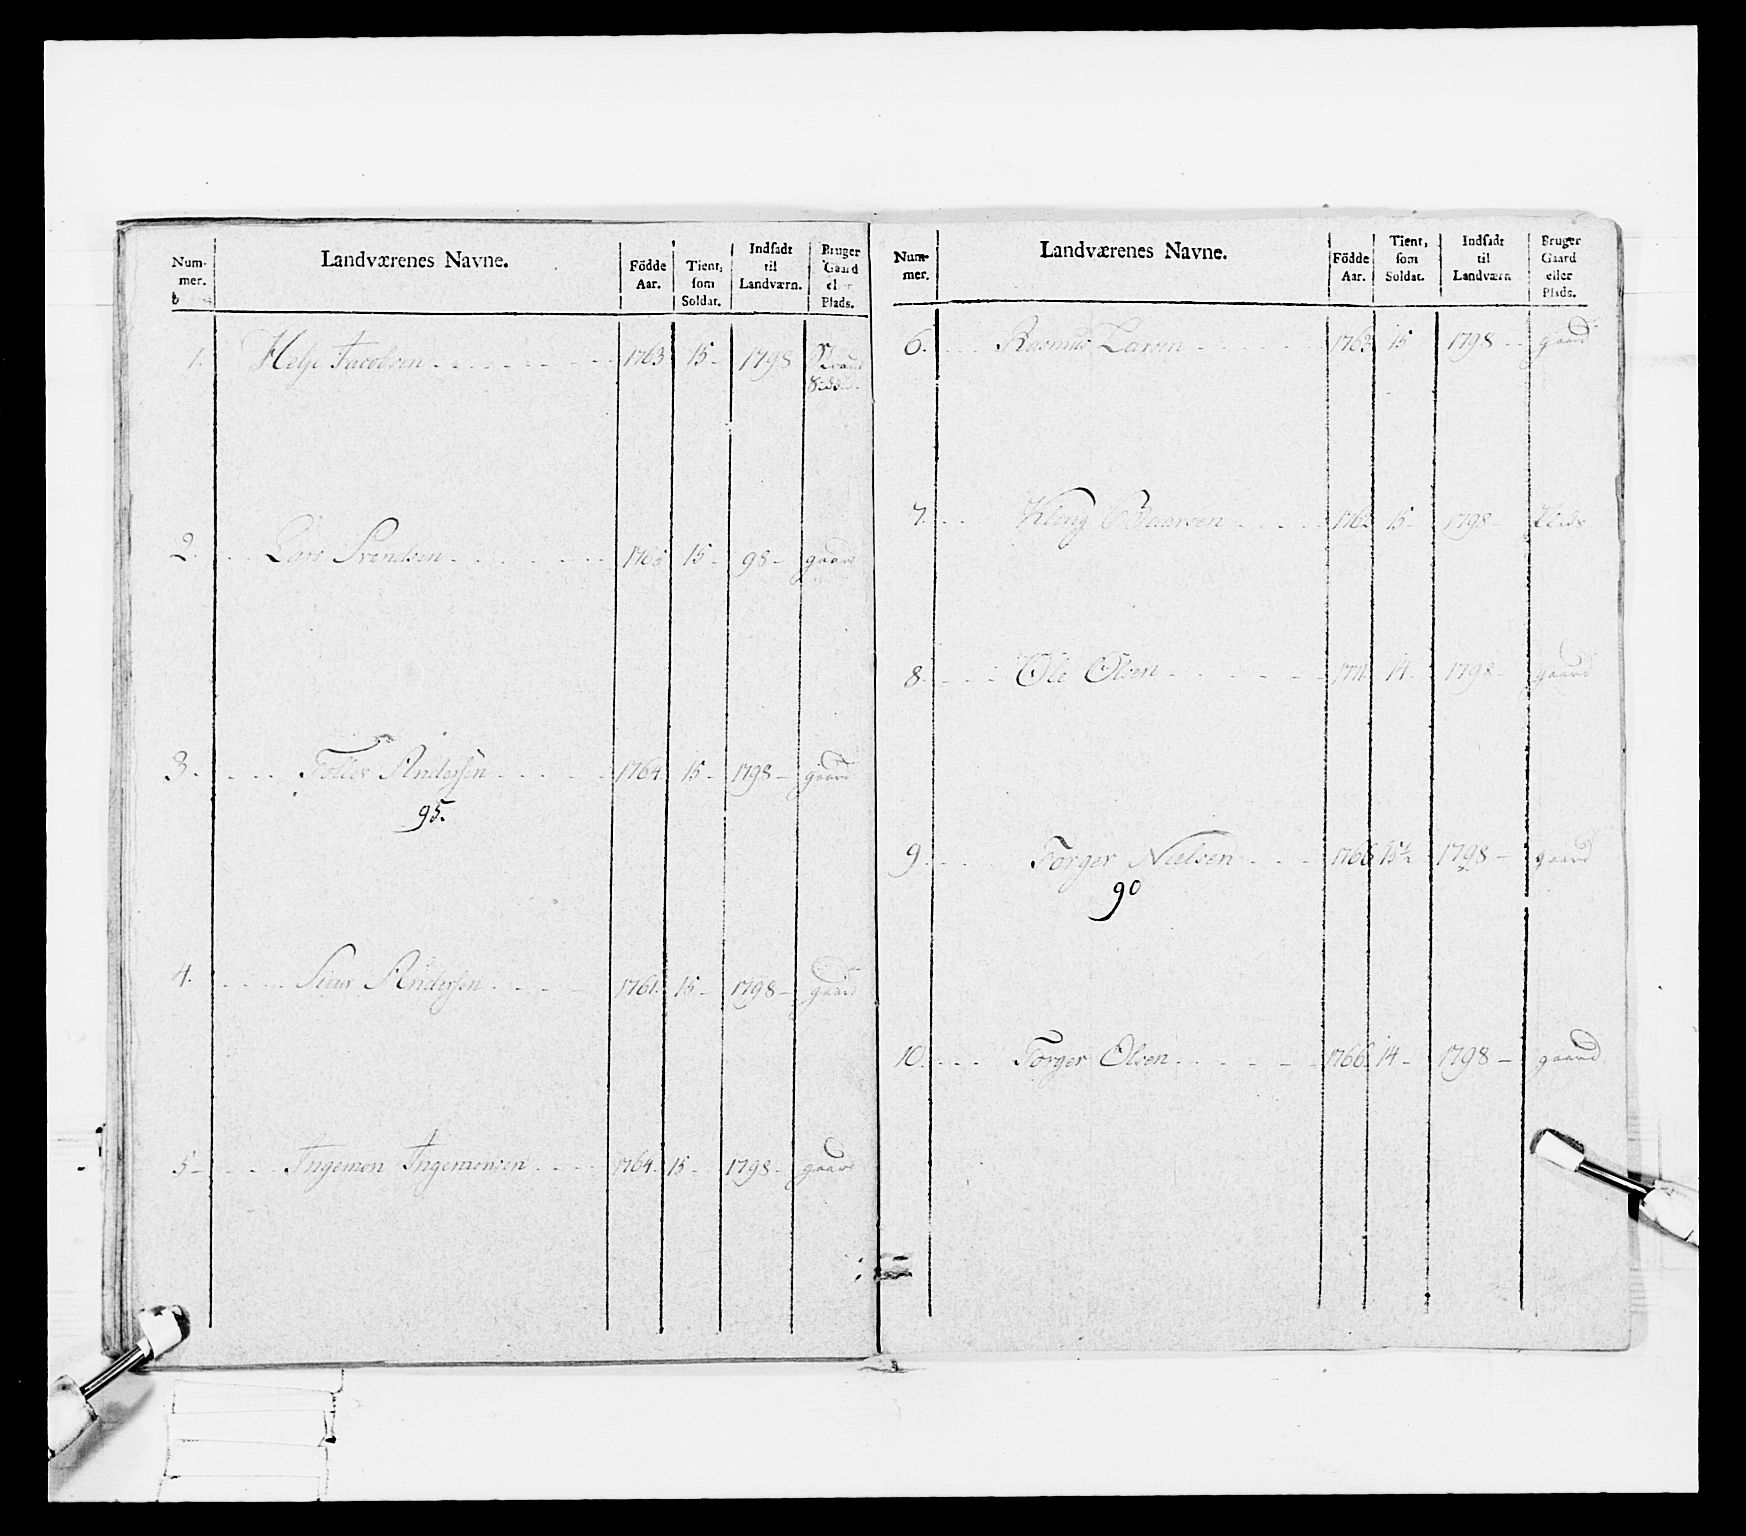 Num-mer. Landværenes Navne. Födde Aar. Tient, som Soldat. Indsadt til Landværn. Bruger Gaard eller Plads.
1. Helje Jacobsen 1763 15 1798 Strand Sidder
2. Lars Svendsen 1765 15 98 gaard
3. Tolles Andersen 1764 15 1798 gaard
95.
4. Siur Andersen 1761 15 1798 gaard
5 Ingemon Ingemonsen 1764 15 1798 gaard
Num-mer. Landværenes Navne. Födde Aar. Tient, som Soldat. Indsadt til Landværn Bruger Gaard eller Plads.
6. Rasmus Larsen 1763 15 1798 gaard
7. Baarsen 15 1798 Plads
8. Ole Olsen 1771 14 1798 gaard
9. Torger Nielsen 1766 15½ 1798 gaard
90
10. Torger Olsen 1766 14 1798 gaard